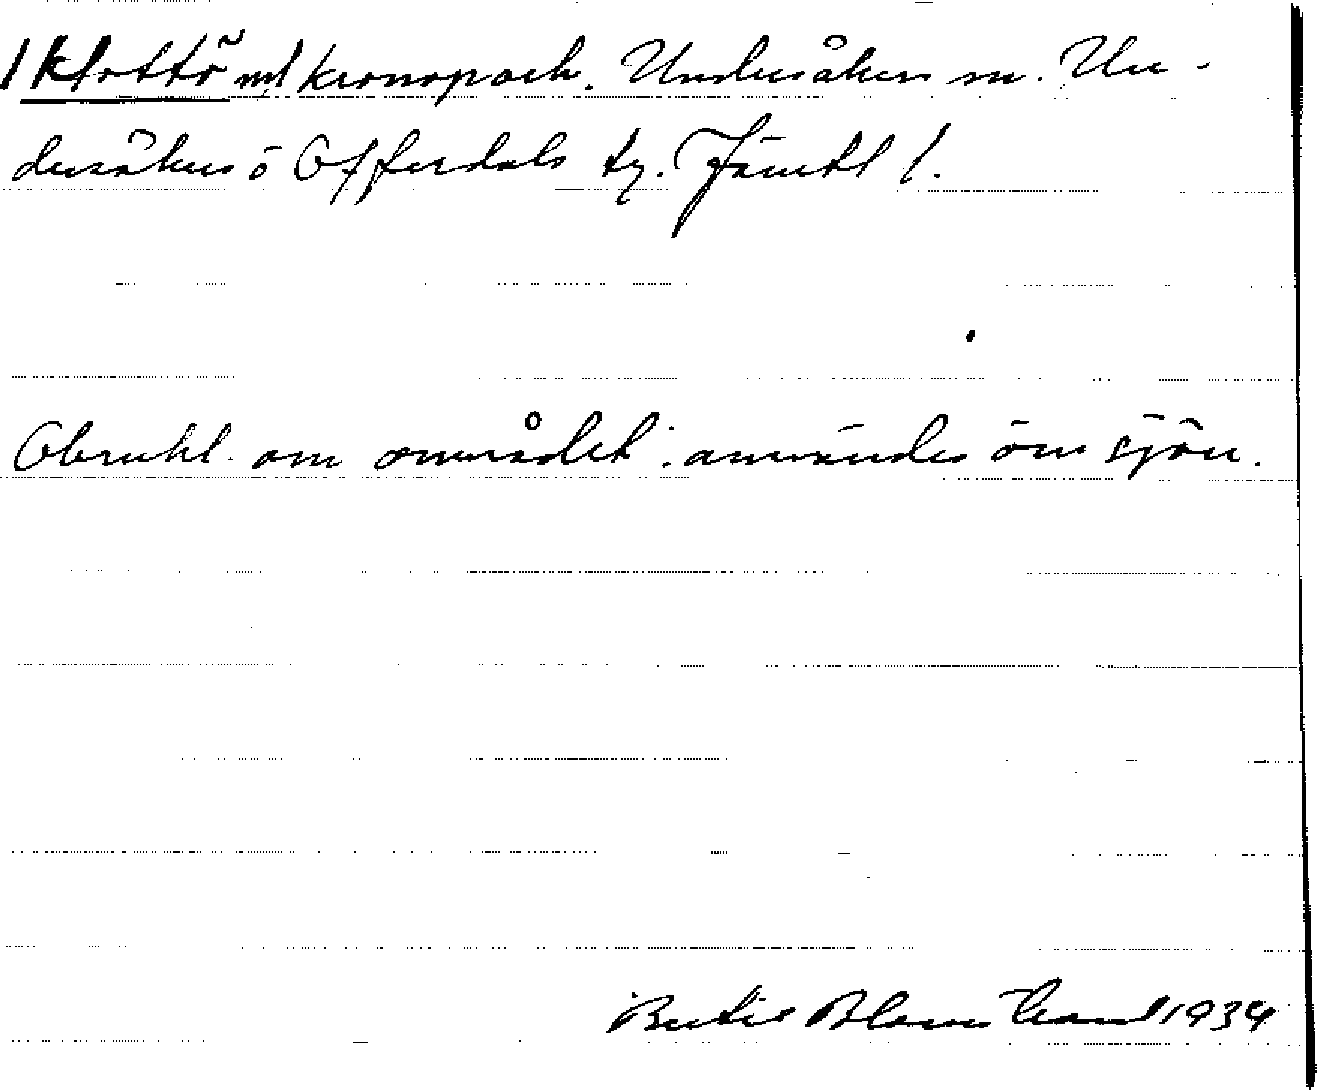 /Klottö m/ kronopark. Undersåkers sn. Un-
dersåkers o Offerdals tg. Jämtl l.
Obrukl. om området; användes om sjön.
Bertil Blomstrand 1934